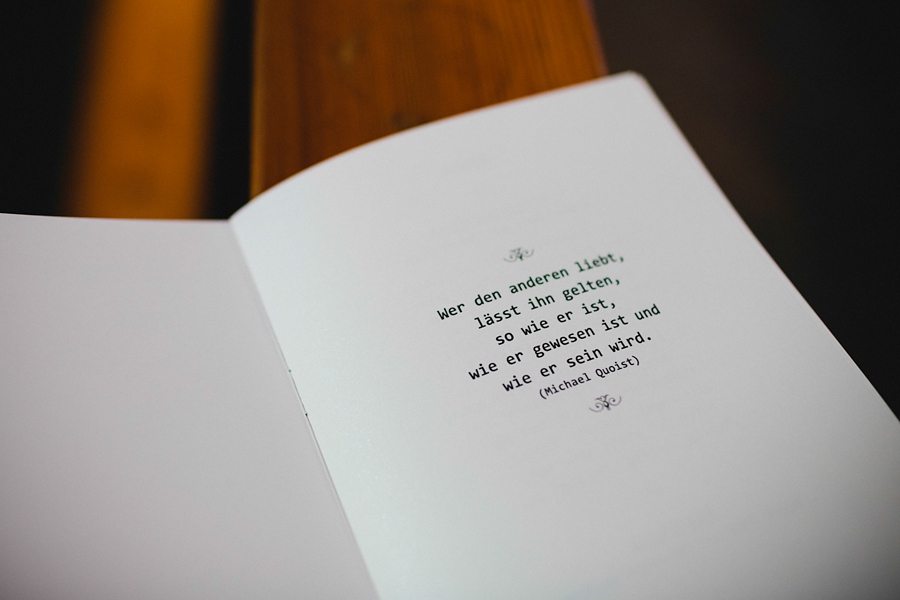 Wer den anderen liebt,
lässt ihn gelten,
so wie er ist,
wie er gewesen ist und
wie er sein wird.
(Michael Quoist)